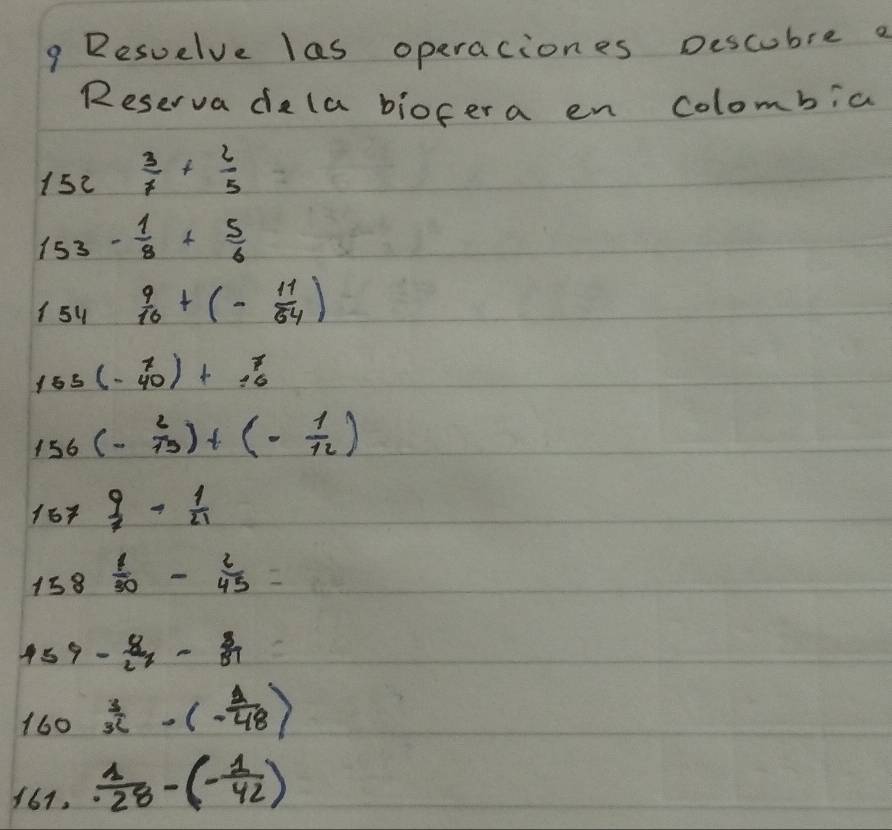 9 Resuelve las operaciones Descubre a
Reserva dela biofera en colombia
152 3/7 + 2/5
153 - 1/8 + 5/6
154 9/16 + (- 11/64)
155 (- 7/40) + 7/16
156 (- 2/15) + (- 1/12)
157 9/7 - 1/21
158 1/30 - 2/45 =
159 - 8/27 - 8/81 =
160 3/32 - (- 1/48)
161. 1/28 - (- 1/42)